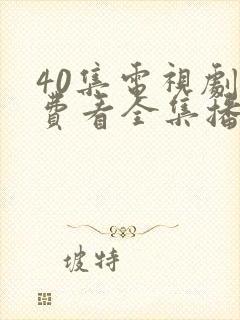 40集電視劇
費看全集播
坡特